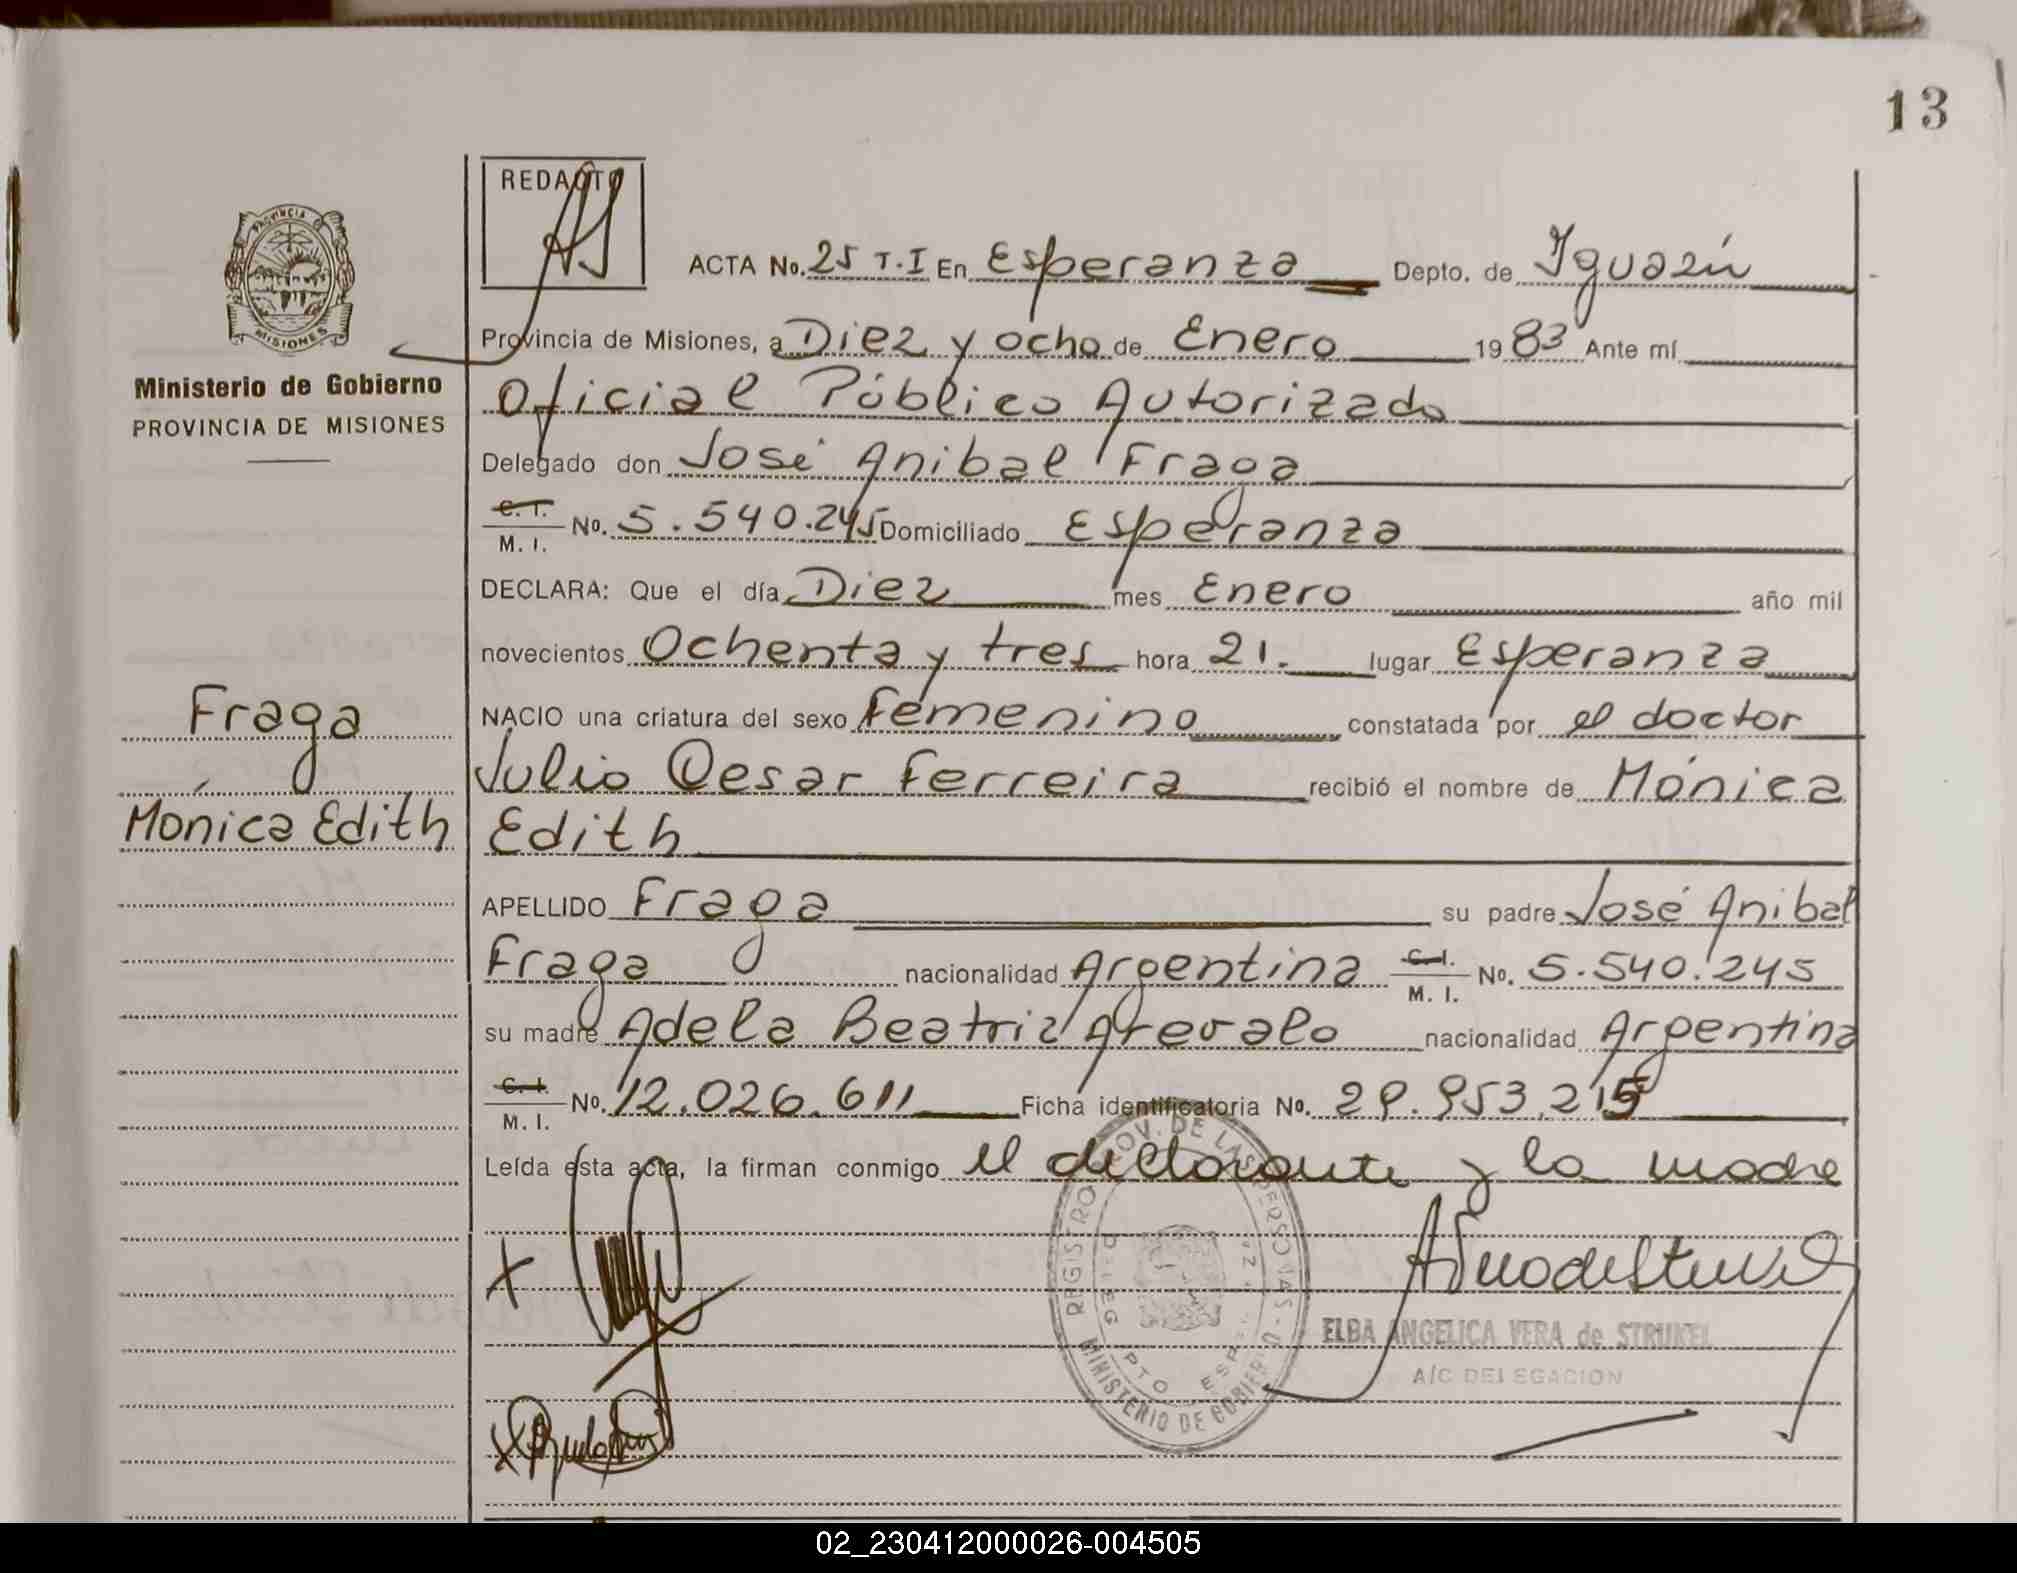 13
REDACTO
ACTA No. 25 T.I En Esperanza Depto. de Iguazú
Provincia de Misiones, a Diez y ocho de Enero 1983 Ante mí
Oficial Público Autorizado
Delegado don José Anibal Fraga
C. I. M. I. No. 5.540.245 Domiciliado Esperanza
DECLARA: Que el día Diez mes Enero año mil
novecientos Ochenta y tres hora 21. lugar Esperanza
NACIO una criatura del sexo femenino constatada por el doctor
Julio Cesar Ferreira recibió el nombre de Mónica
Edith
APELLIDO Fraga su padre José Anibal
Fraga nacionalidad Argentina C. I. M. I. No. 5.540.245
su madre Adela Beatriz Arevalo nacionalidad Argentina
C. I. M. I. No. 12.026.611 Ficha identificatoria No. 29.953.215
Leída esta acta, la firman conmigo el declarante y la madre
PROVINCIA DE
MISIONES
Ministerio de Gobierno
PROVINCIA DE MISIONES
Fraga
Mónica Edith
REGISTRO PROV. DE LAS PERSONAS
MINISTERIO DE GOBIERNO
ELBA ANGELICA VERA de STRUKEL
A/C DELEGACION
02_230412000026-004505